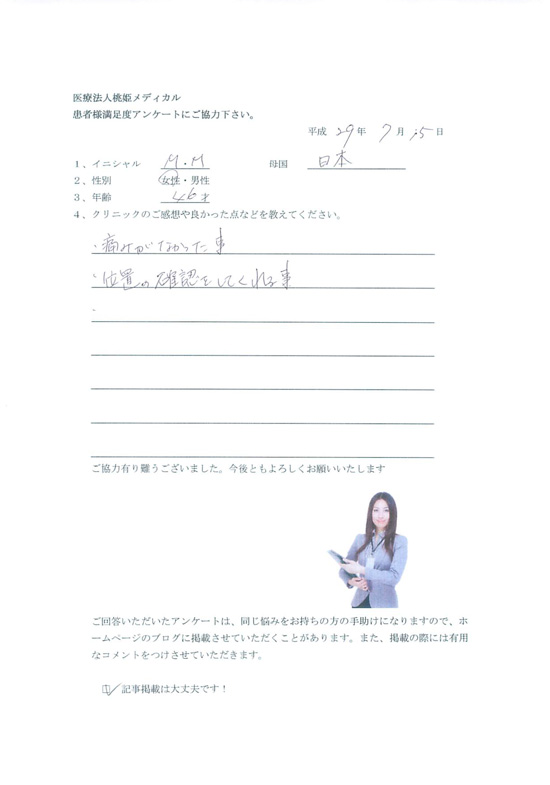 医療法人桃姫メディカル
患者様満足度アンケートにご協力下さい。
平成 29年 7月15日
1、イニシャル M.M 母国 日本
2、性別 女性・男性
3、年齢 46才
4、クリニックのご感想や良かった点などを教えてください。
・痛みがなかった事
・位置の確認をしてくれる事
・
ご協力有り難うございました。今後ともよろしくお願いいたします
ご回答いただいたアンケートは、同じ悩みをお持ちの方の手助けになりますので、ホ
ームページのブログに掲載させていただくことがあります。また、掲載の際には有用
なコメントをつけさせていただきます。
☑ 記事掲載は大丈夫です！